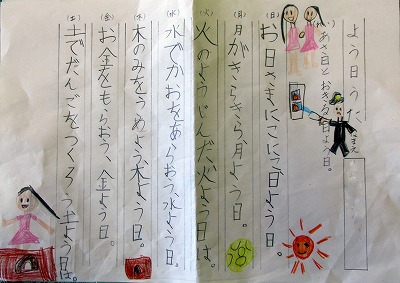 ようび うた
なまえ
(れい) あさ日とおきる日よう日。
(日) お日さまにこにこ日よう日。
(月) 月がきらきら月よう日。
(火) 火のようじんだ火よう日は。
(水) 水でかおをあらおう、水よう日。
(木) 木のみをうめよう木よう日。
(金) お金をもらおう、金よう日。
(土) 土でだんごをつくろう土よう日は。